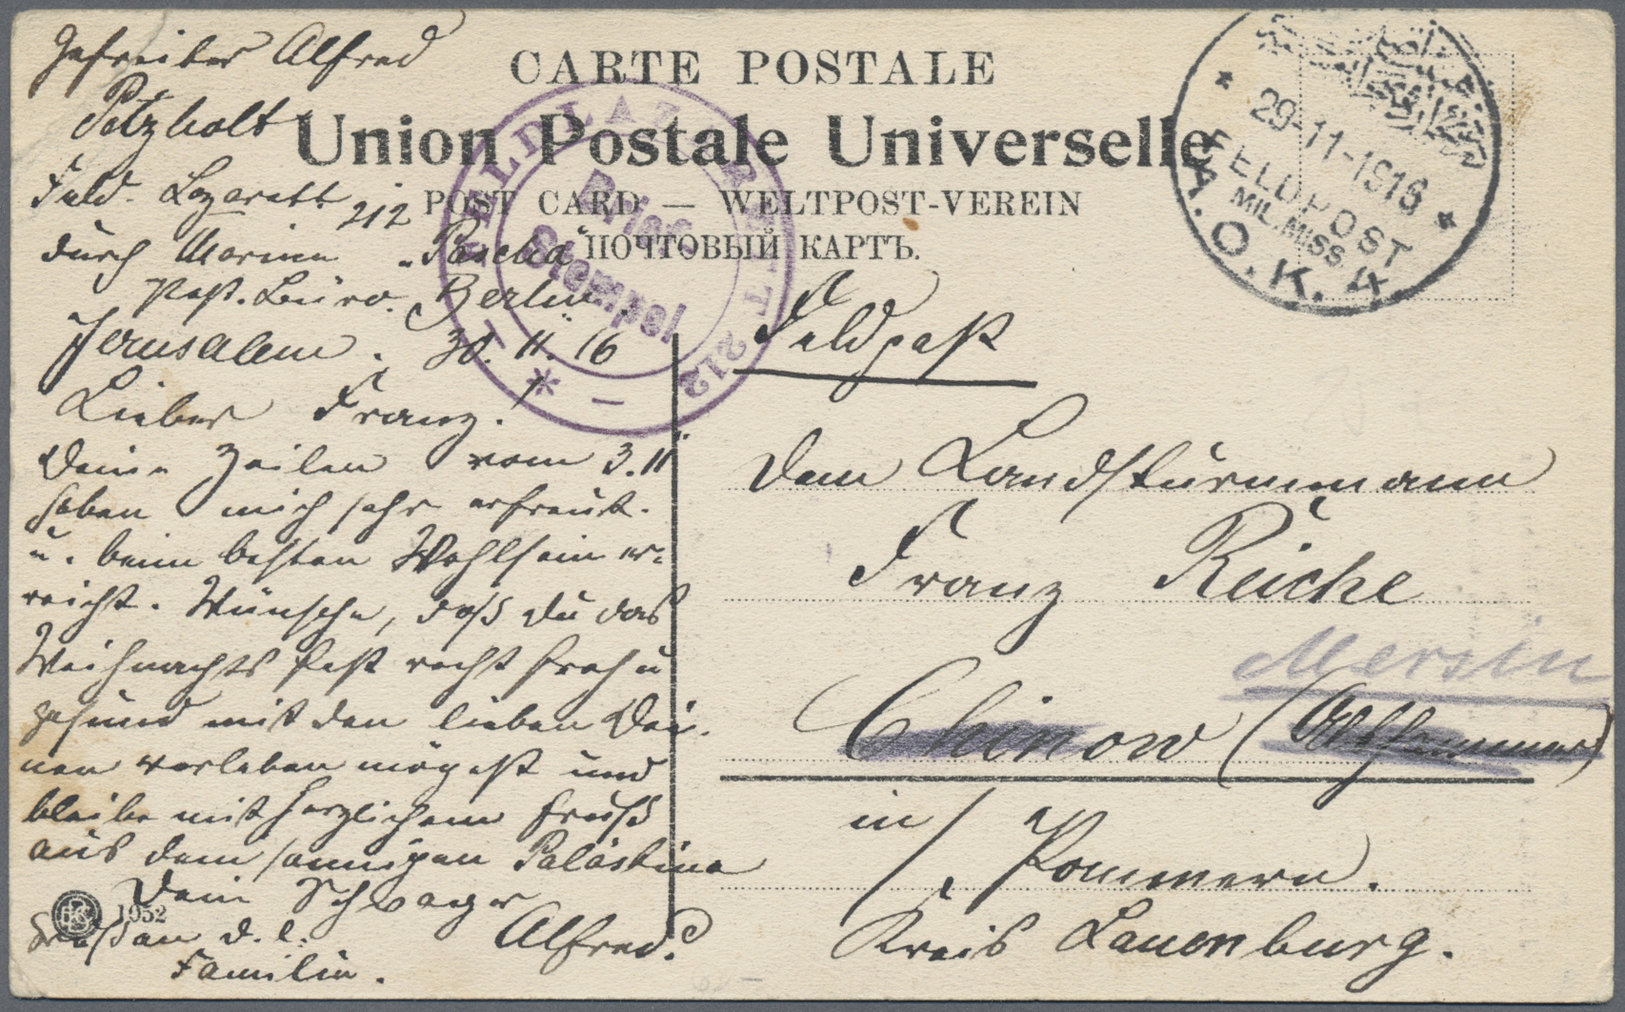 CARTE POSTALE
Union Postale Universelle
POST CARD — WELTPOST-VEREIN
ПОЧТОВЫЙ КАРТЪ.
Gefreiter Alfred
Petzholt
Feld-Lazarett 212
durch Marine „Pascha"
Post. Büro. Berlin.
Jerusalem. 30.11.16
Lieber Franz!
Deine Zeilen vom 3.11
haben mich sehr erfreut.
u. beim besten Wohlsein er-
reicht. Wünsche, daß Du das
Weihnachts fest recht froh u
gesund mit den lieben Dei-
nen verleben mögest und
bleibe mit herzlichem Gruß
aus dem sonnigen Palästina
Dein Schwager
Alfred.
Gruß an d. l.
Familie.
1952
FELDLAZARETT 212
Brief
Stempel
29-11-1916
FELDPOST
MIL. MISS.
A.O.K. 4
Feldpost
Dem Landsturmmann
Franz Reiche
Mersin
Chinow (
in Pommern.
Kreis Lauenburg.